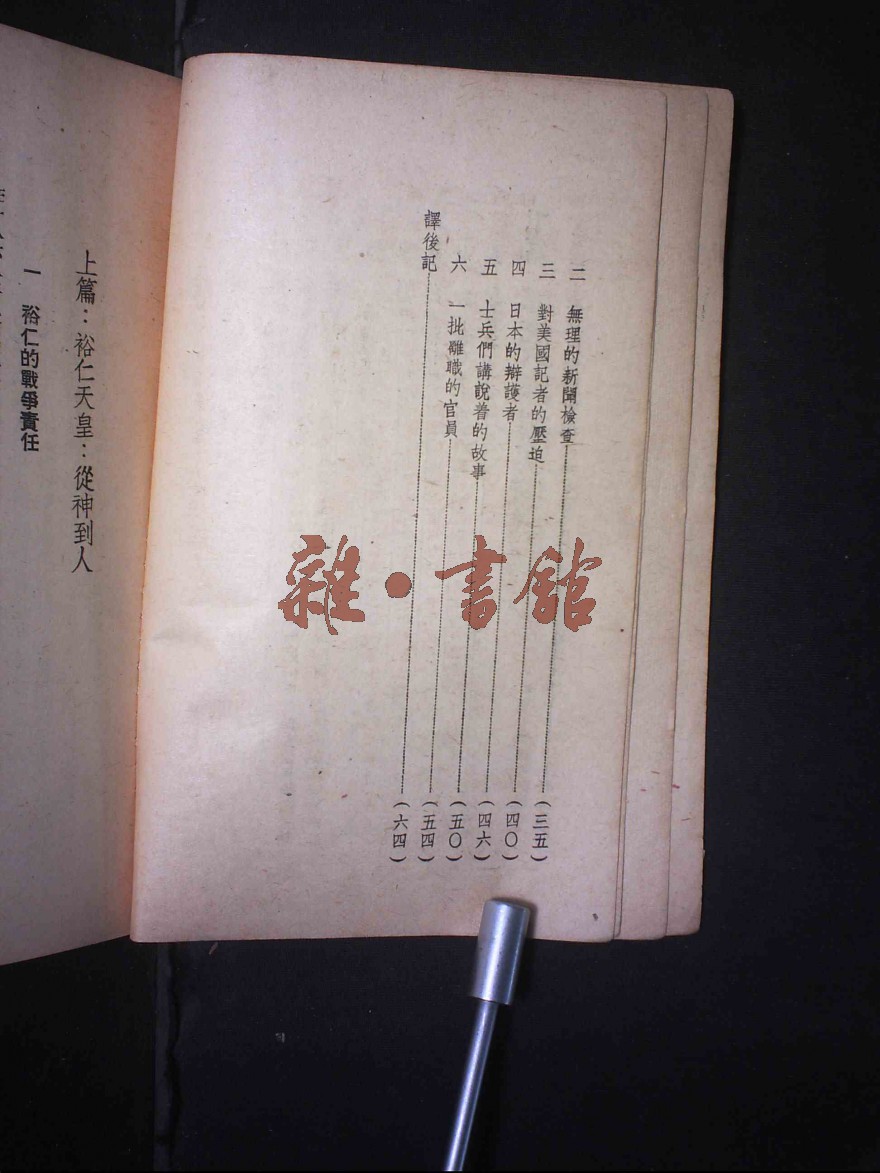 二　無理的新聞檢查………(三五)
三　對美國記者的壓迫………(四〇)
四　日本的辯護者………(四六)
五　士兵們講說着的故事………(五〇)
六　一批離職的官員………(五四)
譯後記………(六四)
上篇：裕仁天皇：從神到人
一　裕仁的戰爭責任
雜·書館